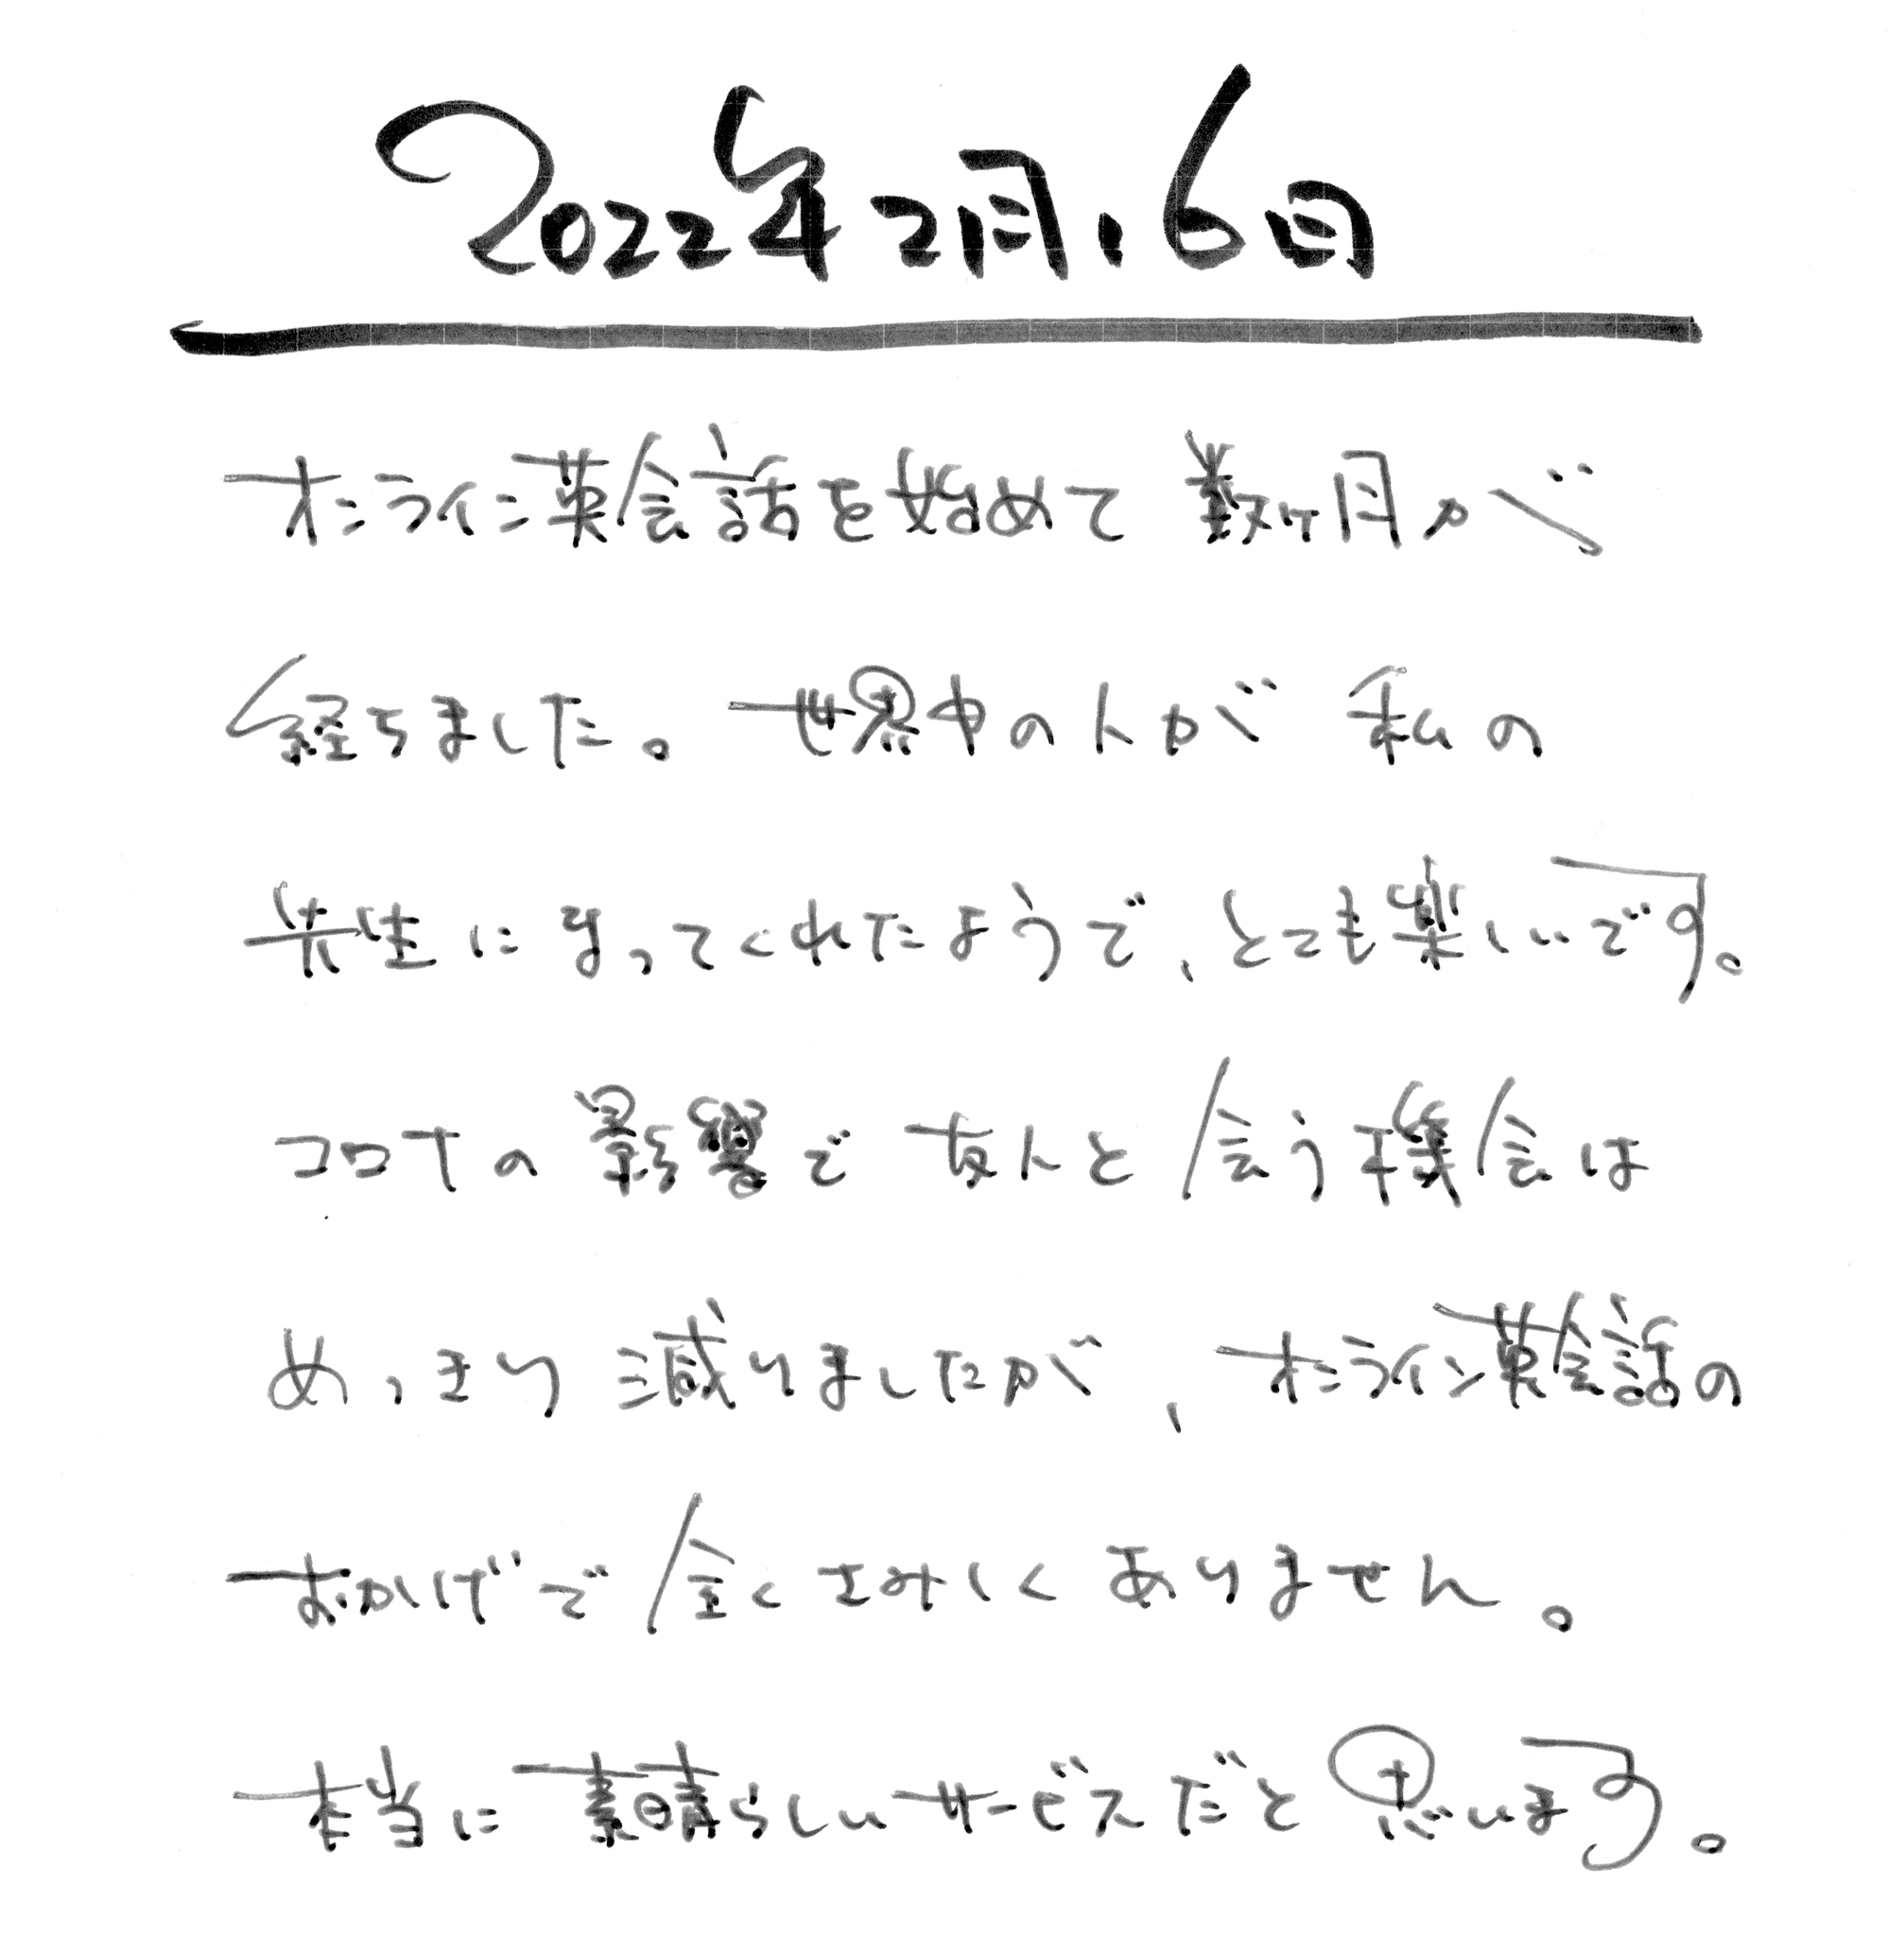 2022年2月16日
オンライン英会話を始めて数ヶ月が
経ちました。世界中の人が私の
先生になってくれたようで、とても楽しいです。
コロナの影響で友人と会う機会は
めっきり減りましたが、オンライン英会話の
おかげで全くさみしくありません。
本当に素晴らしいサービスだと思います。